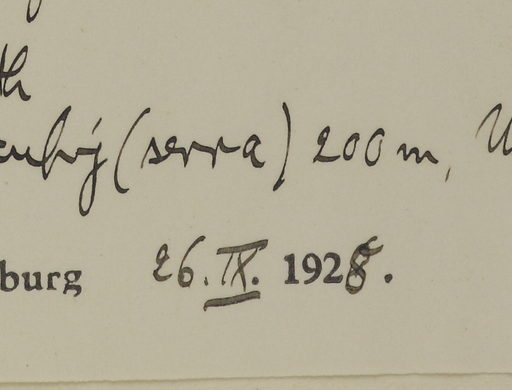 th
(serra) 200 m,
burg 26. IX. 1928.